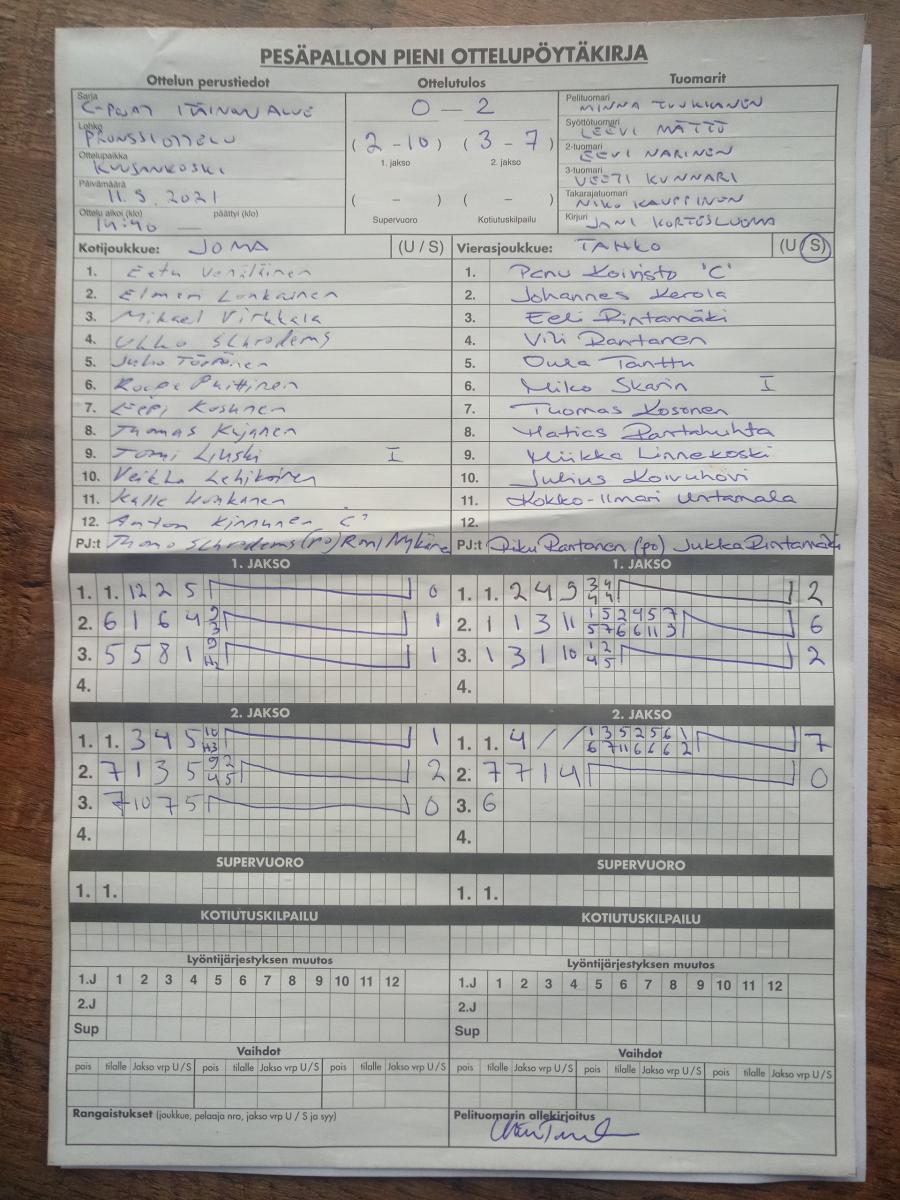 PESÄPALLON PIENI OTTELUPÖYTÄKIRJA
Ottelun perustiedot Ottelutulos Tuomarit
Sarja C-POJAT ITÄINEN ALUE
0 – 2
Pelituomari MINNA
Lohko PRONSSIOTTELU
(2 - 10) (3 - 7)
1. jakso 2. jakso
Syöttötuomari LEEVI MÄTTÖ
Ottelupaikka KUUSANKOSKI
2-tuomari EEVI NARINEN
3-tuomari VEETI KUNNARI
Päivämäärä 11.9.2021
( - ) ( - )
Takarajatuomari NIKO KAUPPINEN
Ottelu alkoi (klo) 14:40 päättyi (klo) —
Supervuoro Kotiutuskilpailu
Kirjuri JANI KORTESLUOMA
Kotijoukkue: JOMA (U / S) Vierasjoukkue: TAHKO (U / S)
1. Eetu Venäläinen 1. Panu Koivisto 'C'
2. Elmeri Lonkainen 2. Johannes Kerola
3. Mikael Virkkala 3. Eeli Rintamäki
4. Ukko Schrodems 4. Vili Rantanen
5. Juho Törrönen 5. Oura Tanttu
6. Roope Puittinen 6. Miko Skarin I
7. Eepi Kosunen 7. Tuomas Kosonen
8. Thomas Kijanen 8. Matias Rantahuhta
9. Tomi Linski I 9. Miikka Linnekoski
10. Veikka Lehikoinen 10. Julius Koivuhovi
11. Kalle 11. Kokko-Ilmari Untamala
12. Anton Kinnunen C' 12.
PJ:t Thomo Schrodems (PJ) PJ:t Riku Rantanen (po) Jukka Rintamäki
1. JAKSO 1. JAKSO
1. 1. 12 2 5 0 1. 1. 2 4 9 3 4 2
4 4
2. 6 1 6 4 9 1 2. 1 1 3 11 1 5 2 4 5 7 6
3 5 7 6 6 11 3
3. 5 5 8 1 9 1 3. 1 3 1 10 1 2 2
H2 4 5
4. 4.
2. JAKSO 2. JAKSO
1. 1. 3 4 5 10 1 1. 1. 4 / / 1 3 5 2 5 6 1 7
H3 6 7 11 6 6 6 2
2. 7 1 3 5 9 2 2 2. 7 7 1 4 0
4 5
3. 7 10 7 5 0 3. 6
4. 4.
SUPERVUORO SUPERVUORO
1. 1. 1. 1.
KOTIUTUSKILPAILU KOTIUTUSKILPAILU
Lyöntijärjestyksen muutos Lyöntijärjestyksen muutos
1.J 1 2 3 4 5 6 7 8 9 10 11 12 1.J 1 2 3 4 5 6 7 8 9 10 11 12
2.J 2.J
Sup Sup
Vaihdot Vaihdot
pois tilalle Jakso vrp U / S pois tilalle Jakso vrp U / S pois tilalle Jakso vrp U / S pois tilalle Jakso vrp U / S pois tilalle Jakso vrp U / S pois tilalle Jakso vrp U / S
Rangaistukset (joukkue, pelaaja nro, jakso vrp U / S ja syy) Pelituomarin allekirjoitus